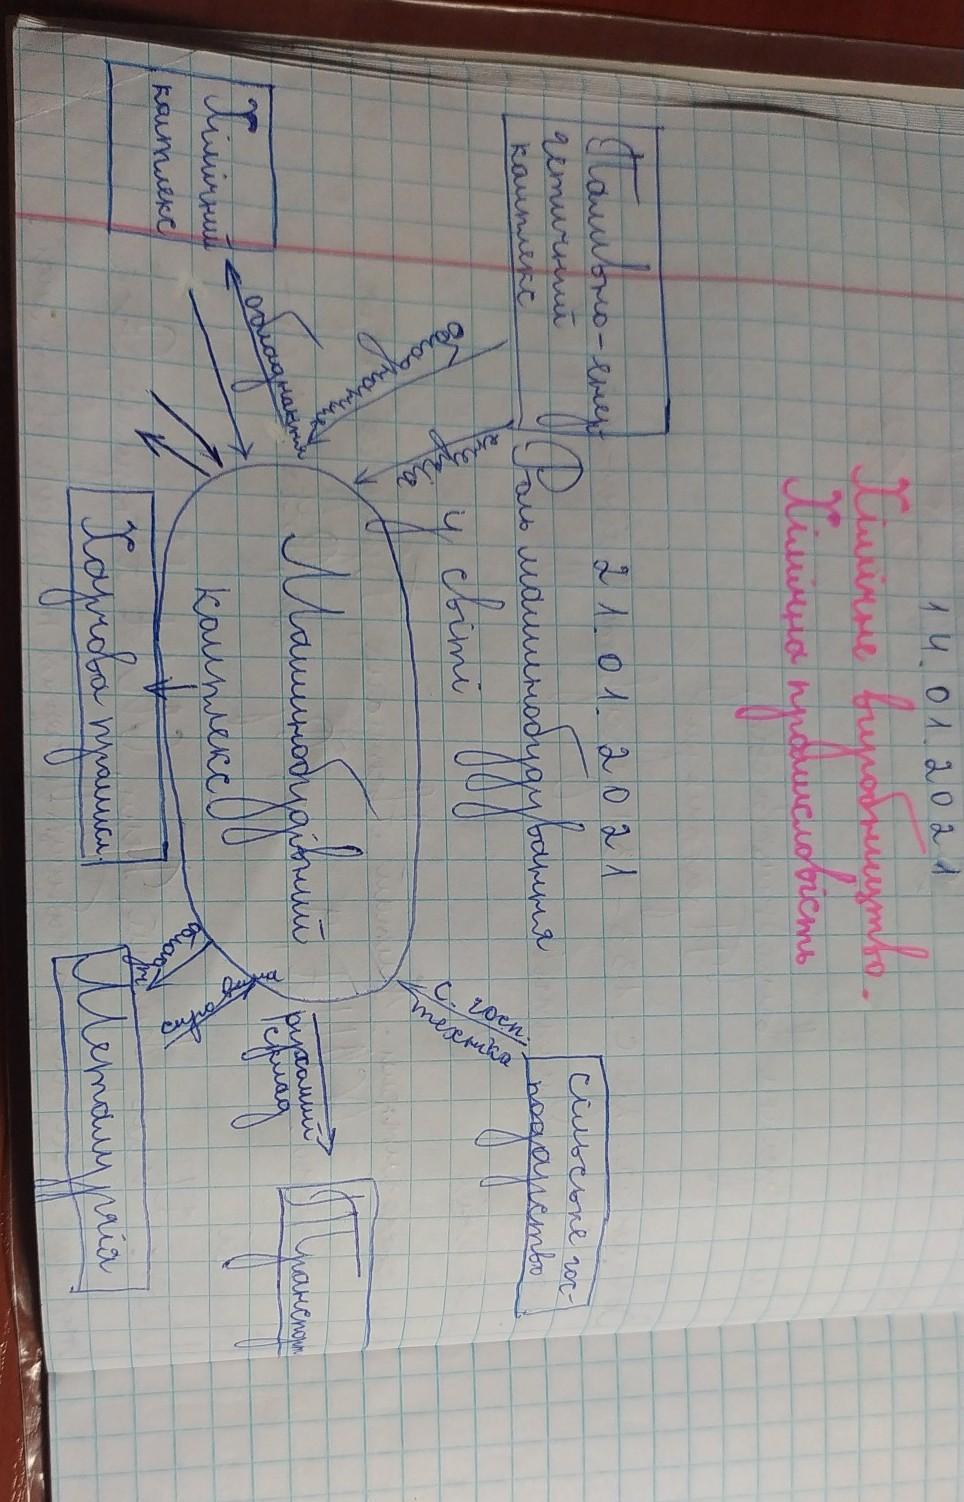 14.01.2021
Хімічне виробництво.
Хімічна промисловість
21.01.2021
Роль машинобудування
у світі
Паливно-енер
гетичний
комплекс
Сільське гос-
подарство
с. госп.
техніка
Хімічний
комплекс
обладнання
Машинобудівний
комплекс
Транспорт
рухомий
склад
Харчова промисл.
Металургія